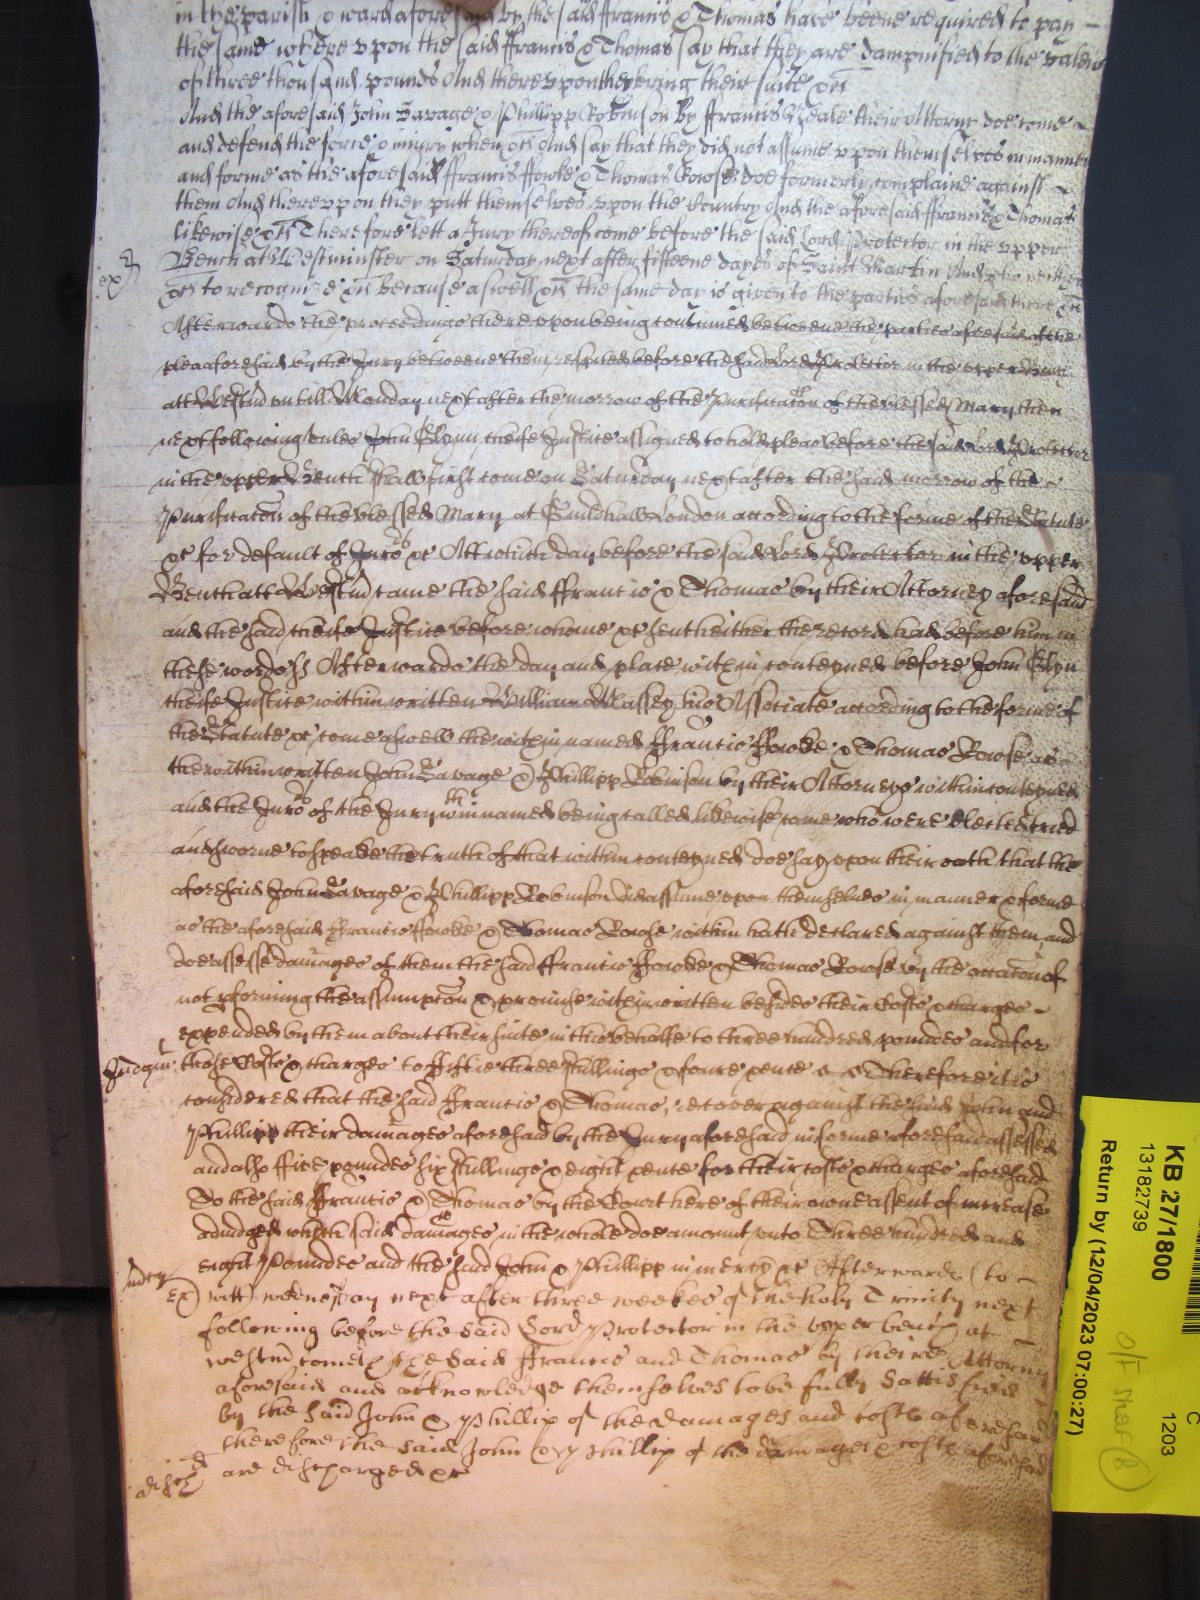 in the parish & ward aforesaid by the said ffrancis & Thomas have beene required to pay
the same where upon the said ffrancis & Thomas say that they are dampnified to the value
of three thousand pounds And thereupon they bring their suite &c
And the aforesaid John Savage & Phillipp Robinson by ffrancis Neale their Attorny doe come
and defend the force & iniury when &c And say that they did not assume upon themselves in manner
and forme as the aforesaid ffrancis ffowke & Thomas Rowse doe formerly complaine against
them And thereupon they putt themselves upon the Country And the aforesaid ffrancis & Thomas
likewise &c Therefore lett a Jury thereof come before the said Lord Protector in the upper
Bench at Westminster on Saturday next after fifteene dayes of Saint Martin And who neither
&c to recognize &c because aswell &c the same day is given to the parties aforesaid there &c
Afterwards the proceedings thereupon being continued betweene the parties aforesaid of the
plea aforesaid by the Jury betweene them respited before the said Lord Protector in the upper Bench
att Westm untill Monday next after the morrow of the Purificaton of the blessed Mary then
next following unles John Glynn cheife Justice assigned to hold pleas before the said Lord Protector
in the upper Bench shall first come on Saturday next after the said morrow of the
Purificaton of the blessed Mary at Guildhall London according to the forme of the Statute
&c for default of Juro rs &c Att which day before the said Lord Protector in the upper
Bench att Westm came the said ffrancis & Thomas by their Attorney aforesaid
and the said cheife Justice before whome &c sent heither the record had before him in
these words ss Afterwards the day and place within conteyned before John Glyn
cheife Justice within written William Massey his Associate according to the forme of
the Statute &c come aswell the within named ffrancis ffowke & Thomas Rowse as
the within written John Savage & Phillipp Robinson by their Attorneys within conteyned
and the Juro rs of the Jury w th in named being called likewise come who were elected tried
and sworne to speake the truth of that within conteyned doe say upon their oath that the
aforesaid John Savage & Phillipp Robinson did assume upon themselves in manner & forme
as the aforesaid ffrancis ffowke & Thomas Rowse within hath declared against them and
doe assesse damages of them the said ffrancis ffowke & Thomas Rowse by the occaton of
not pforming the assumpton & promise within written besides their Costs & charges
expended by them about their suite in this behalfe to three hundred pounds and for
Judgm t those Costs & charges to fiftie three shillings & foure pence Therefore it is
considered that the said ffrancis & Thomas recover against the said John and
Phillipp their damages aforesaid by the Jury aforesaid in forme aforesaid assessed
and also ffive pounds six shillings & eight pence for their costs & charges aforesaid
To the said ffrancis & Thomas by the Court here of their owne assent of increase
adiudged which said damages in the whole doe amount unto Three hundred and
eight Pounds and the said John & Phillipp in mercy &c Afterwards (to
witt) wednesday next after three weekes of the holy Trinity next
following before the said Lord Protector in the upper bench at
westm cometh the said ffrancis and Thomas by theire Attorny
aforesaid and acknowledge themselves to be fully sattisfied
by the said John & Phillip of the damages and costs aforesaid
therefore the said John & Phillip of the damages & costs aforesaid
are discharged &c
KB 27/1800
13182739
Return by (12/04/2023 07:00:27)
C
1203